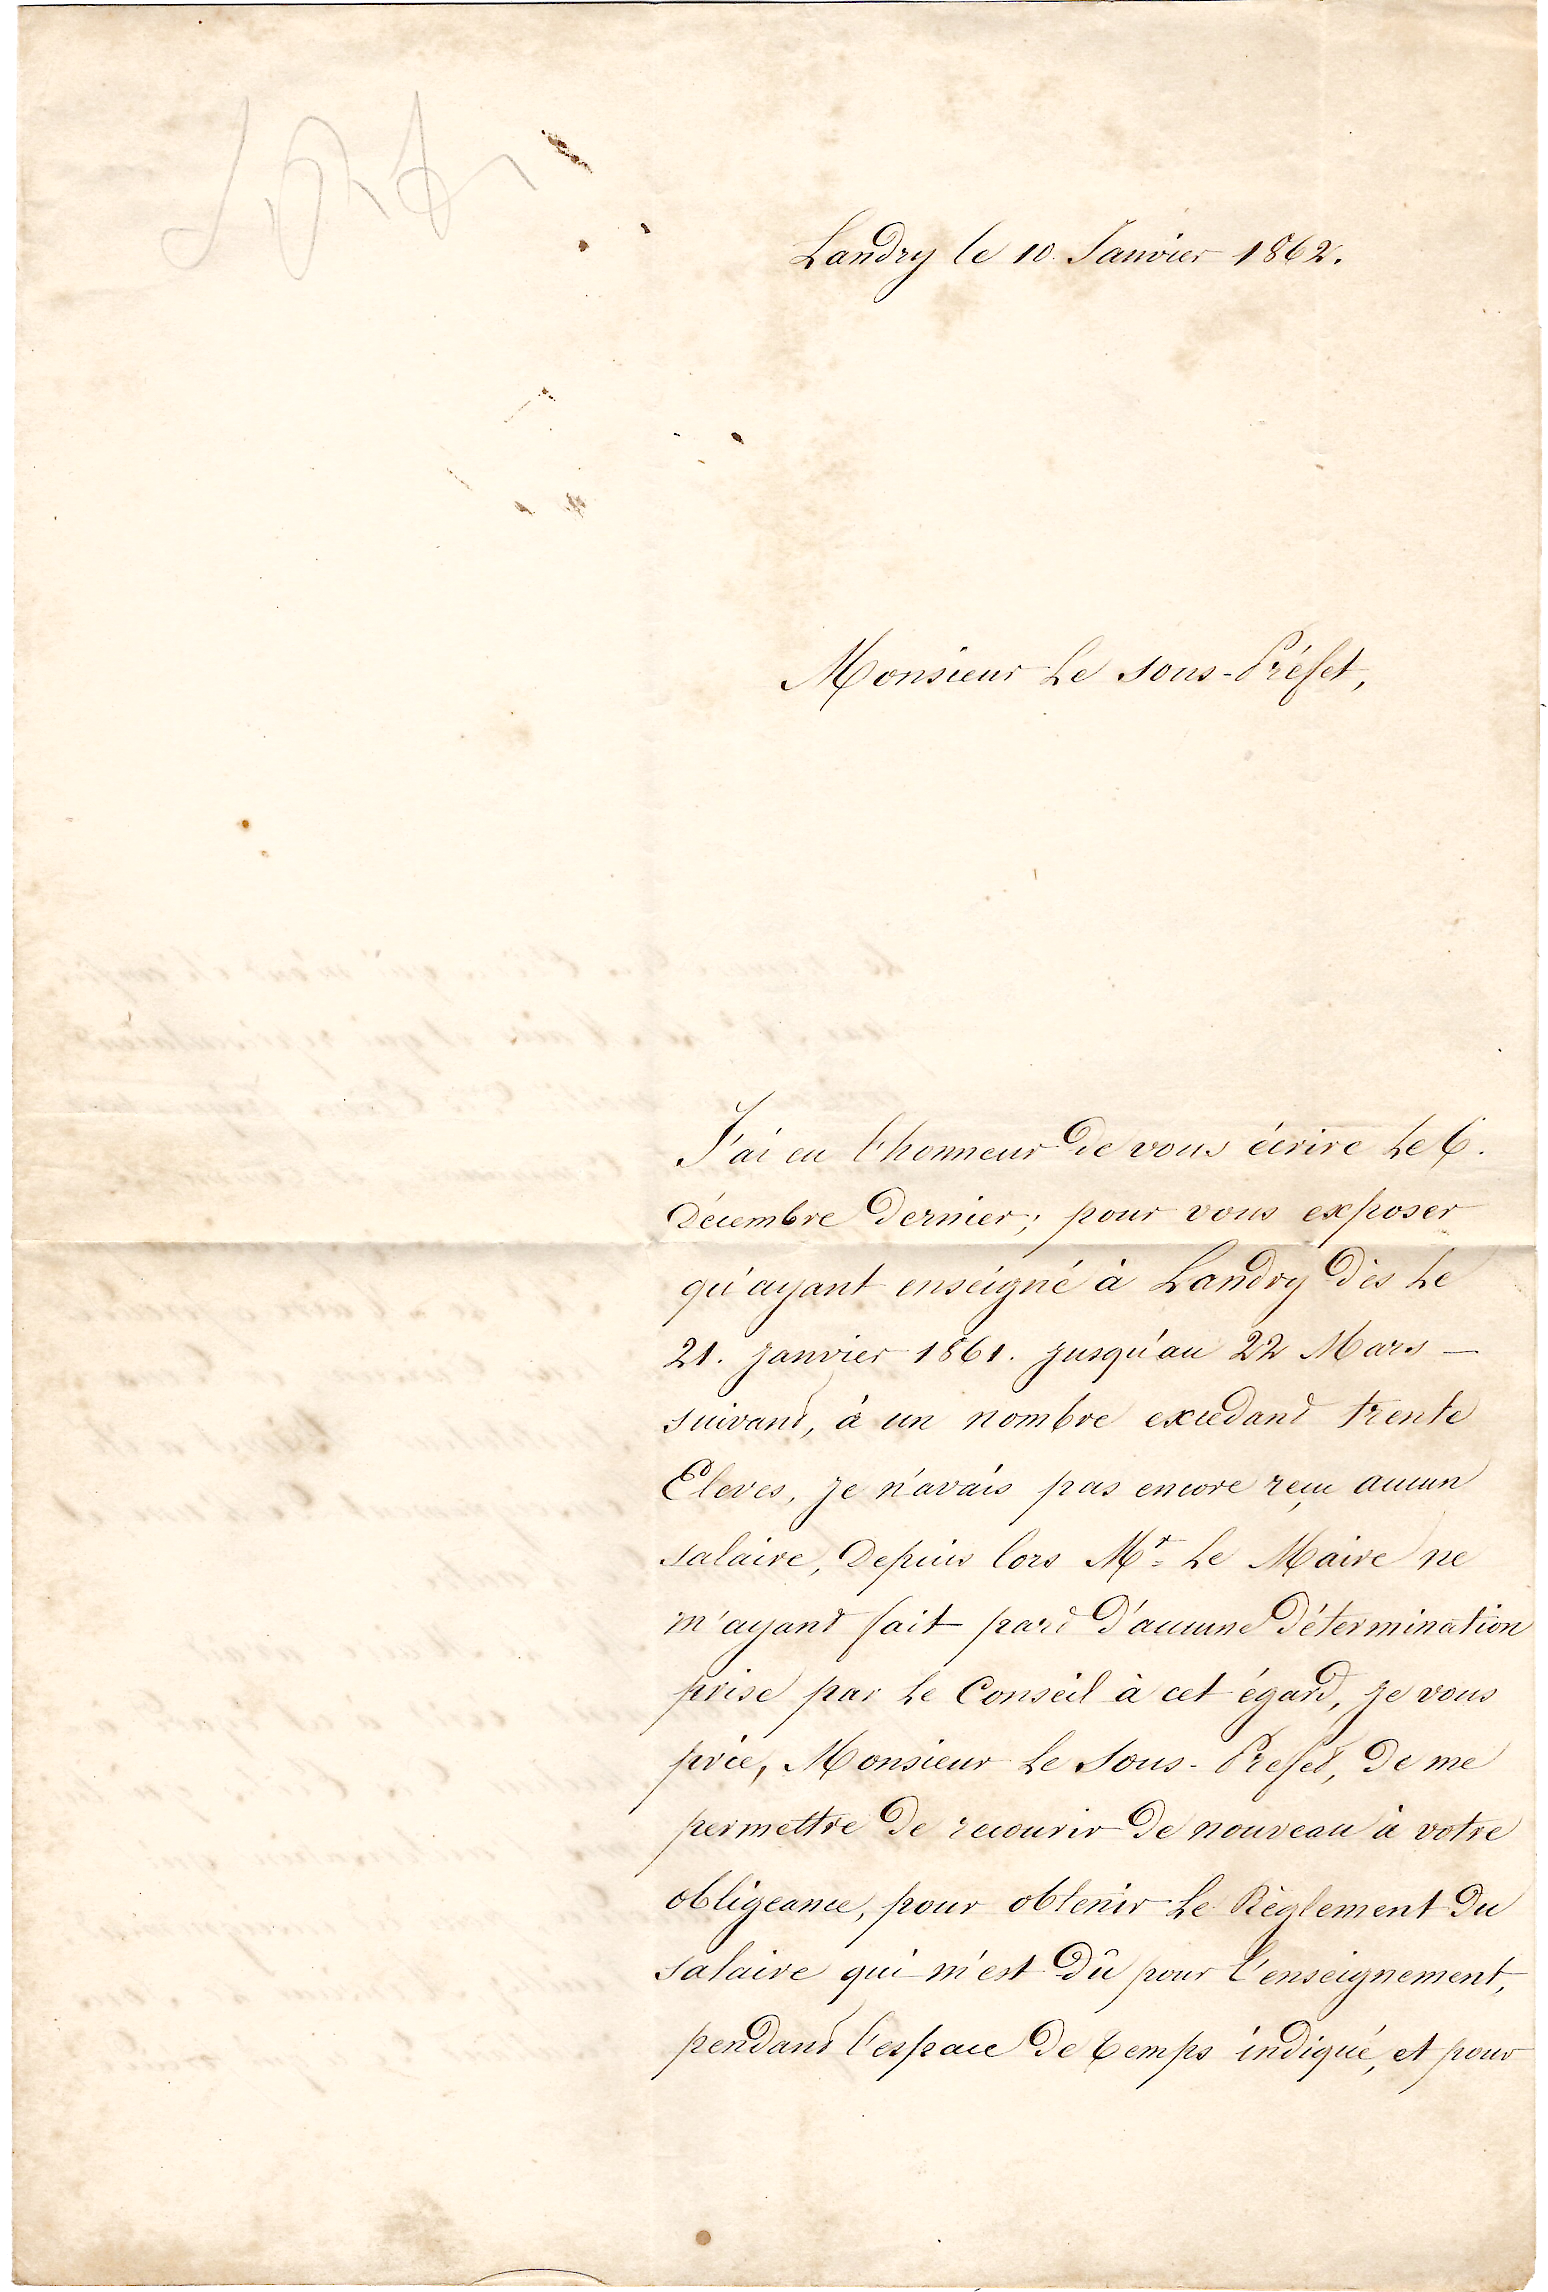 Landry le 10. Janvier 1862.
Monsieur Le Sous-Préfet,
J'ai eu l'honneur de vous écrire Le 6.
Décembre dernier; pour vous exposer
qu'ayant enseigné à Landry dès Le
21. Janvier 1861. jusqu'au 22 Mars —
suivant, à un nombre excedant trente
Eleves, je n'avais pas encore reçu aucun
salaire, Depuis lors Mr. Le Maire ne
m'ayant fait part d'aucune détermination
prise par Le Conseil à cet égard, je vous
prie, Monsieur Le Sous-Prefet, de me
permettre de recourir de nouveau à votre
obligeance, pour obtenir Le Règlement du
salaire qui m'est dû pour l'enseignement,
pendant l'espace de temps indiqué, et pour